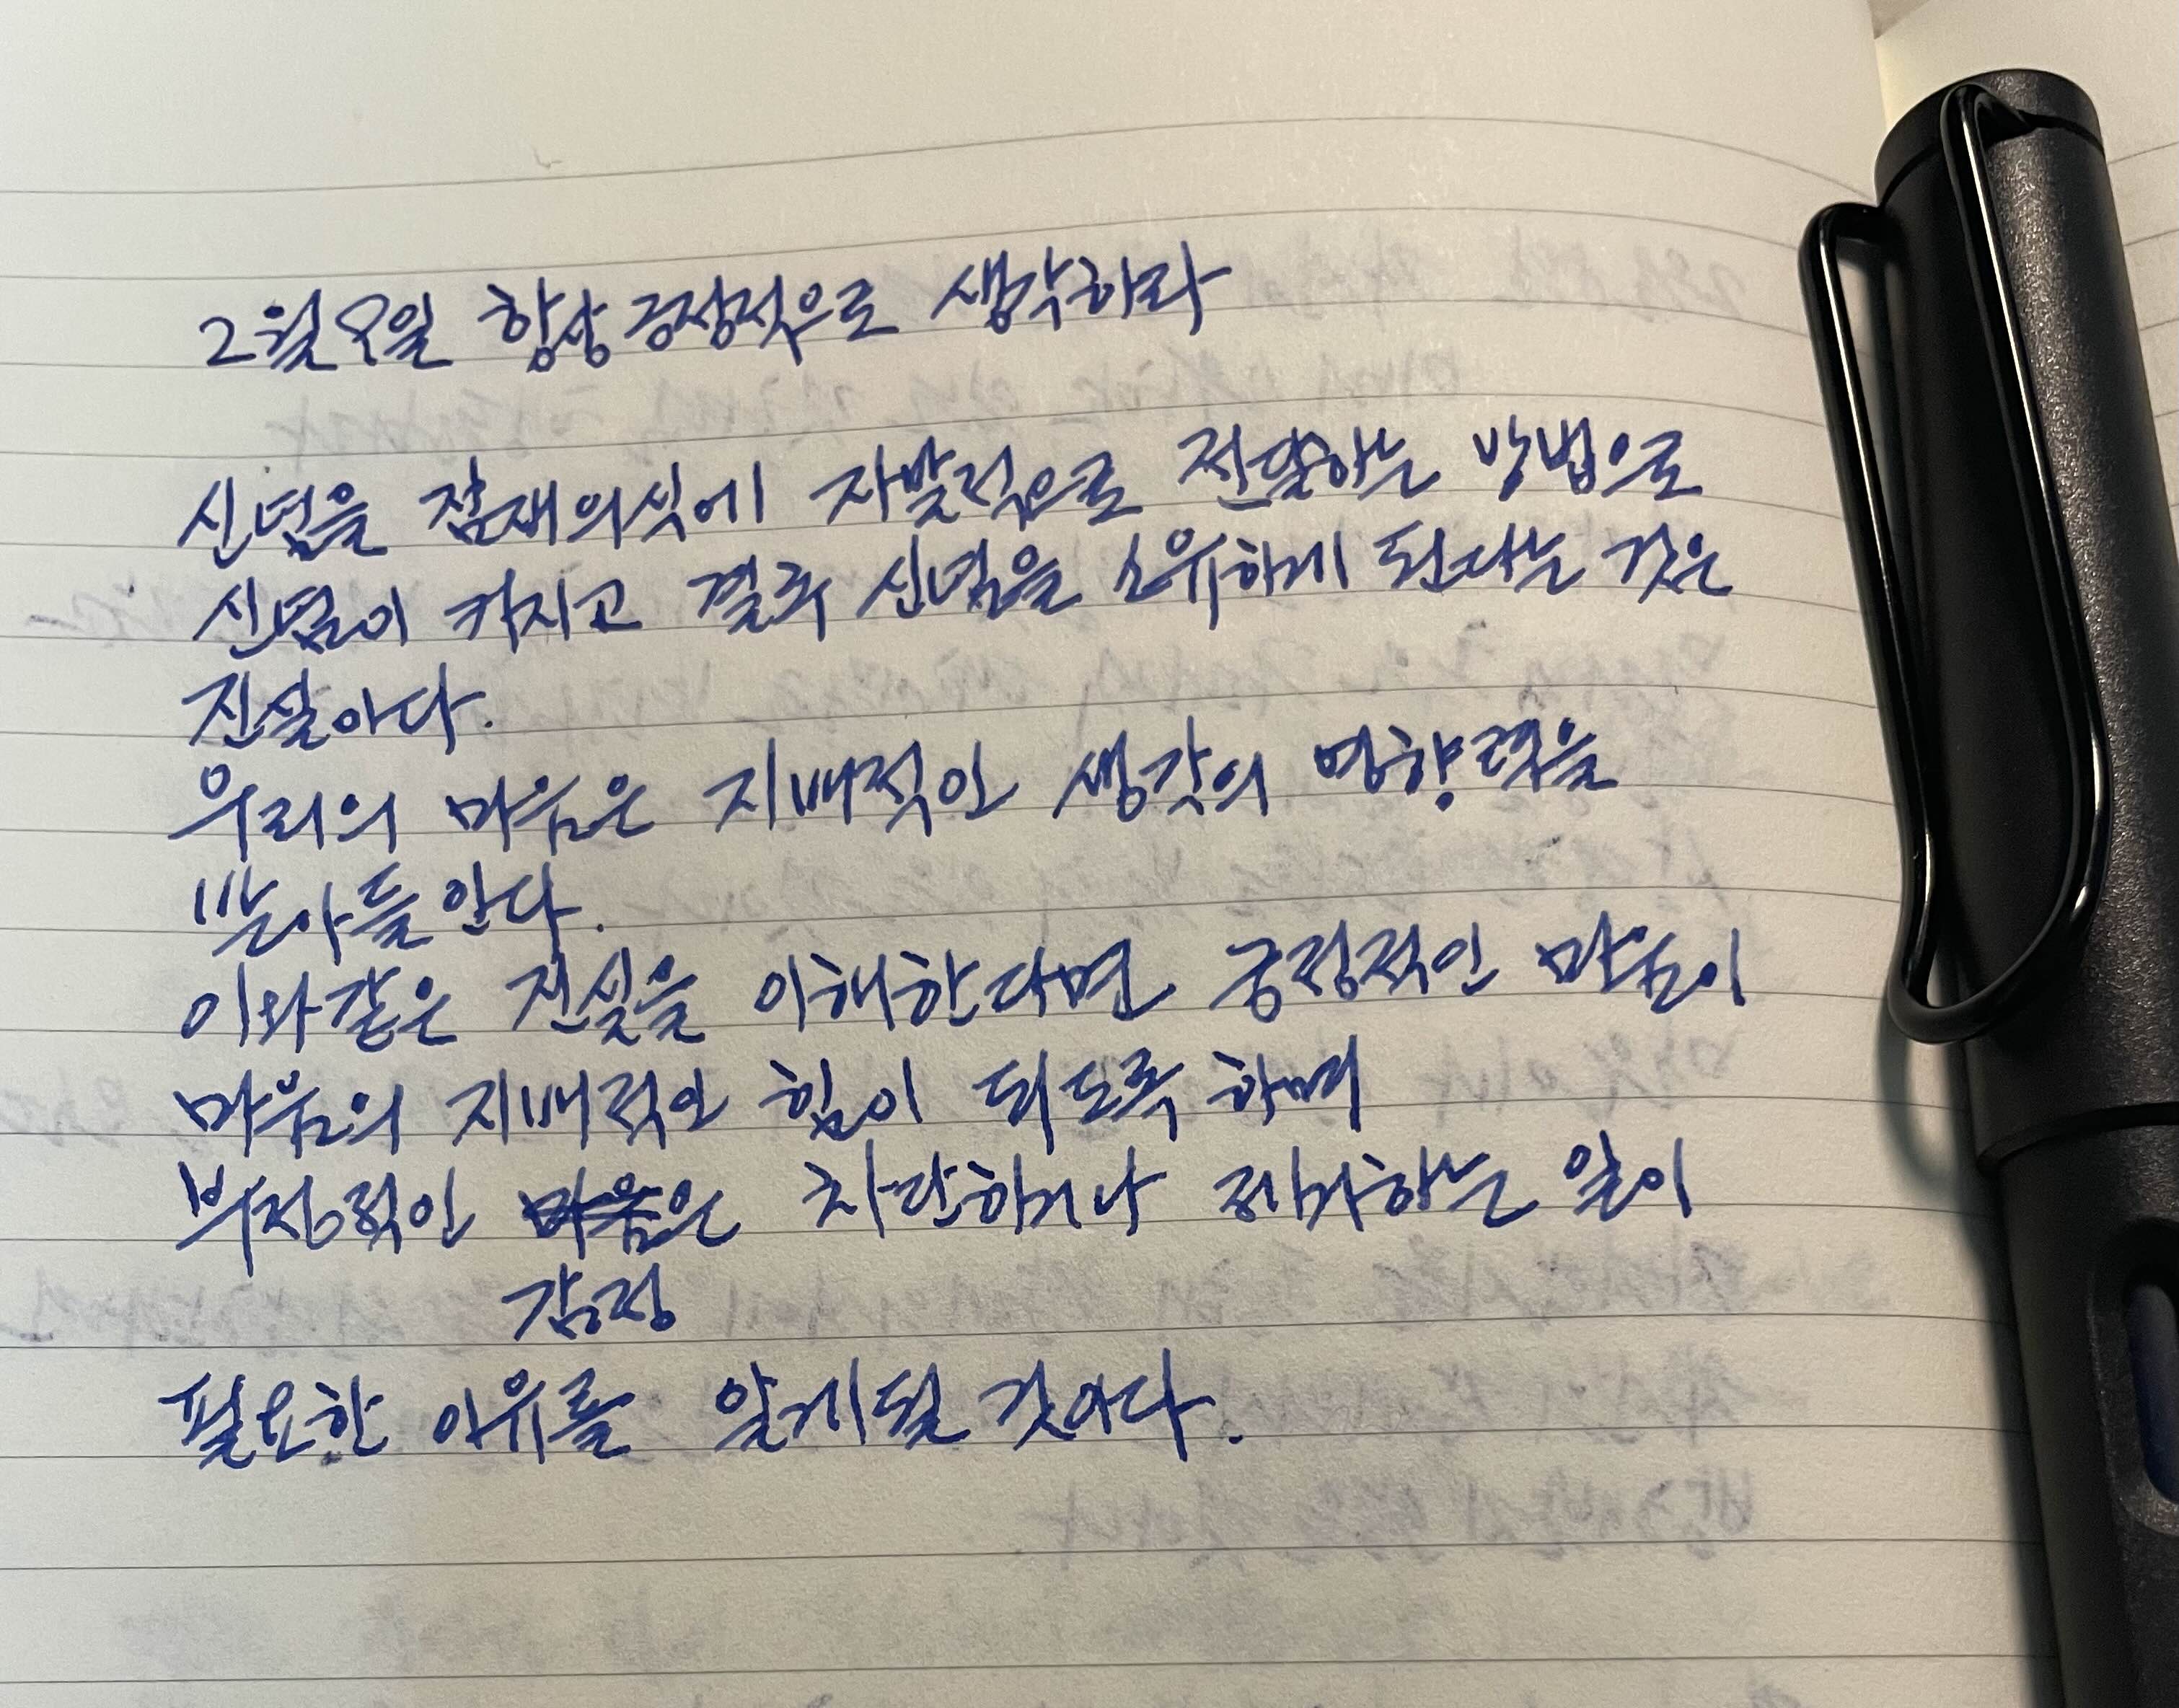 2월 8일 항상 긍정적으로 생각하라
신념을 잠재의식에 자발적으로 전달하는 방법으로
신념이 커지고 결국 신념을 소유하게 된다는 것은
진실이다.
우리의 마음은 지배적인 생각의 영향력을
받아들인다.
이와같은 진실을 이해한다면 긍정적인 마음이
마음의 지배적인 힘이 되도록 하며
부정적인 마음은 차단하거나 제거하는 일이
감정
필요한 이유를 알게될 것이다.